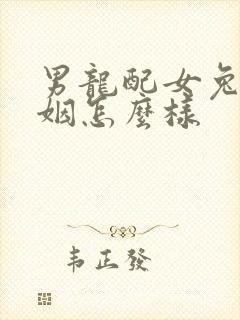 男龍配女兔
姻怎麼樣
韦正發